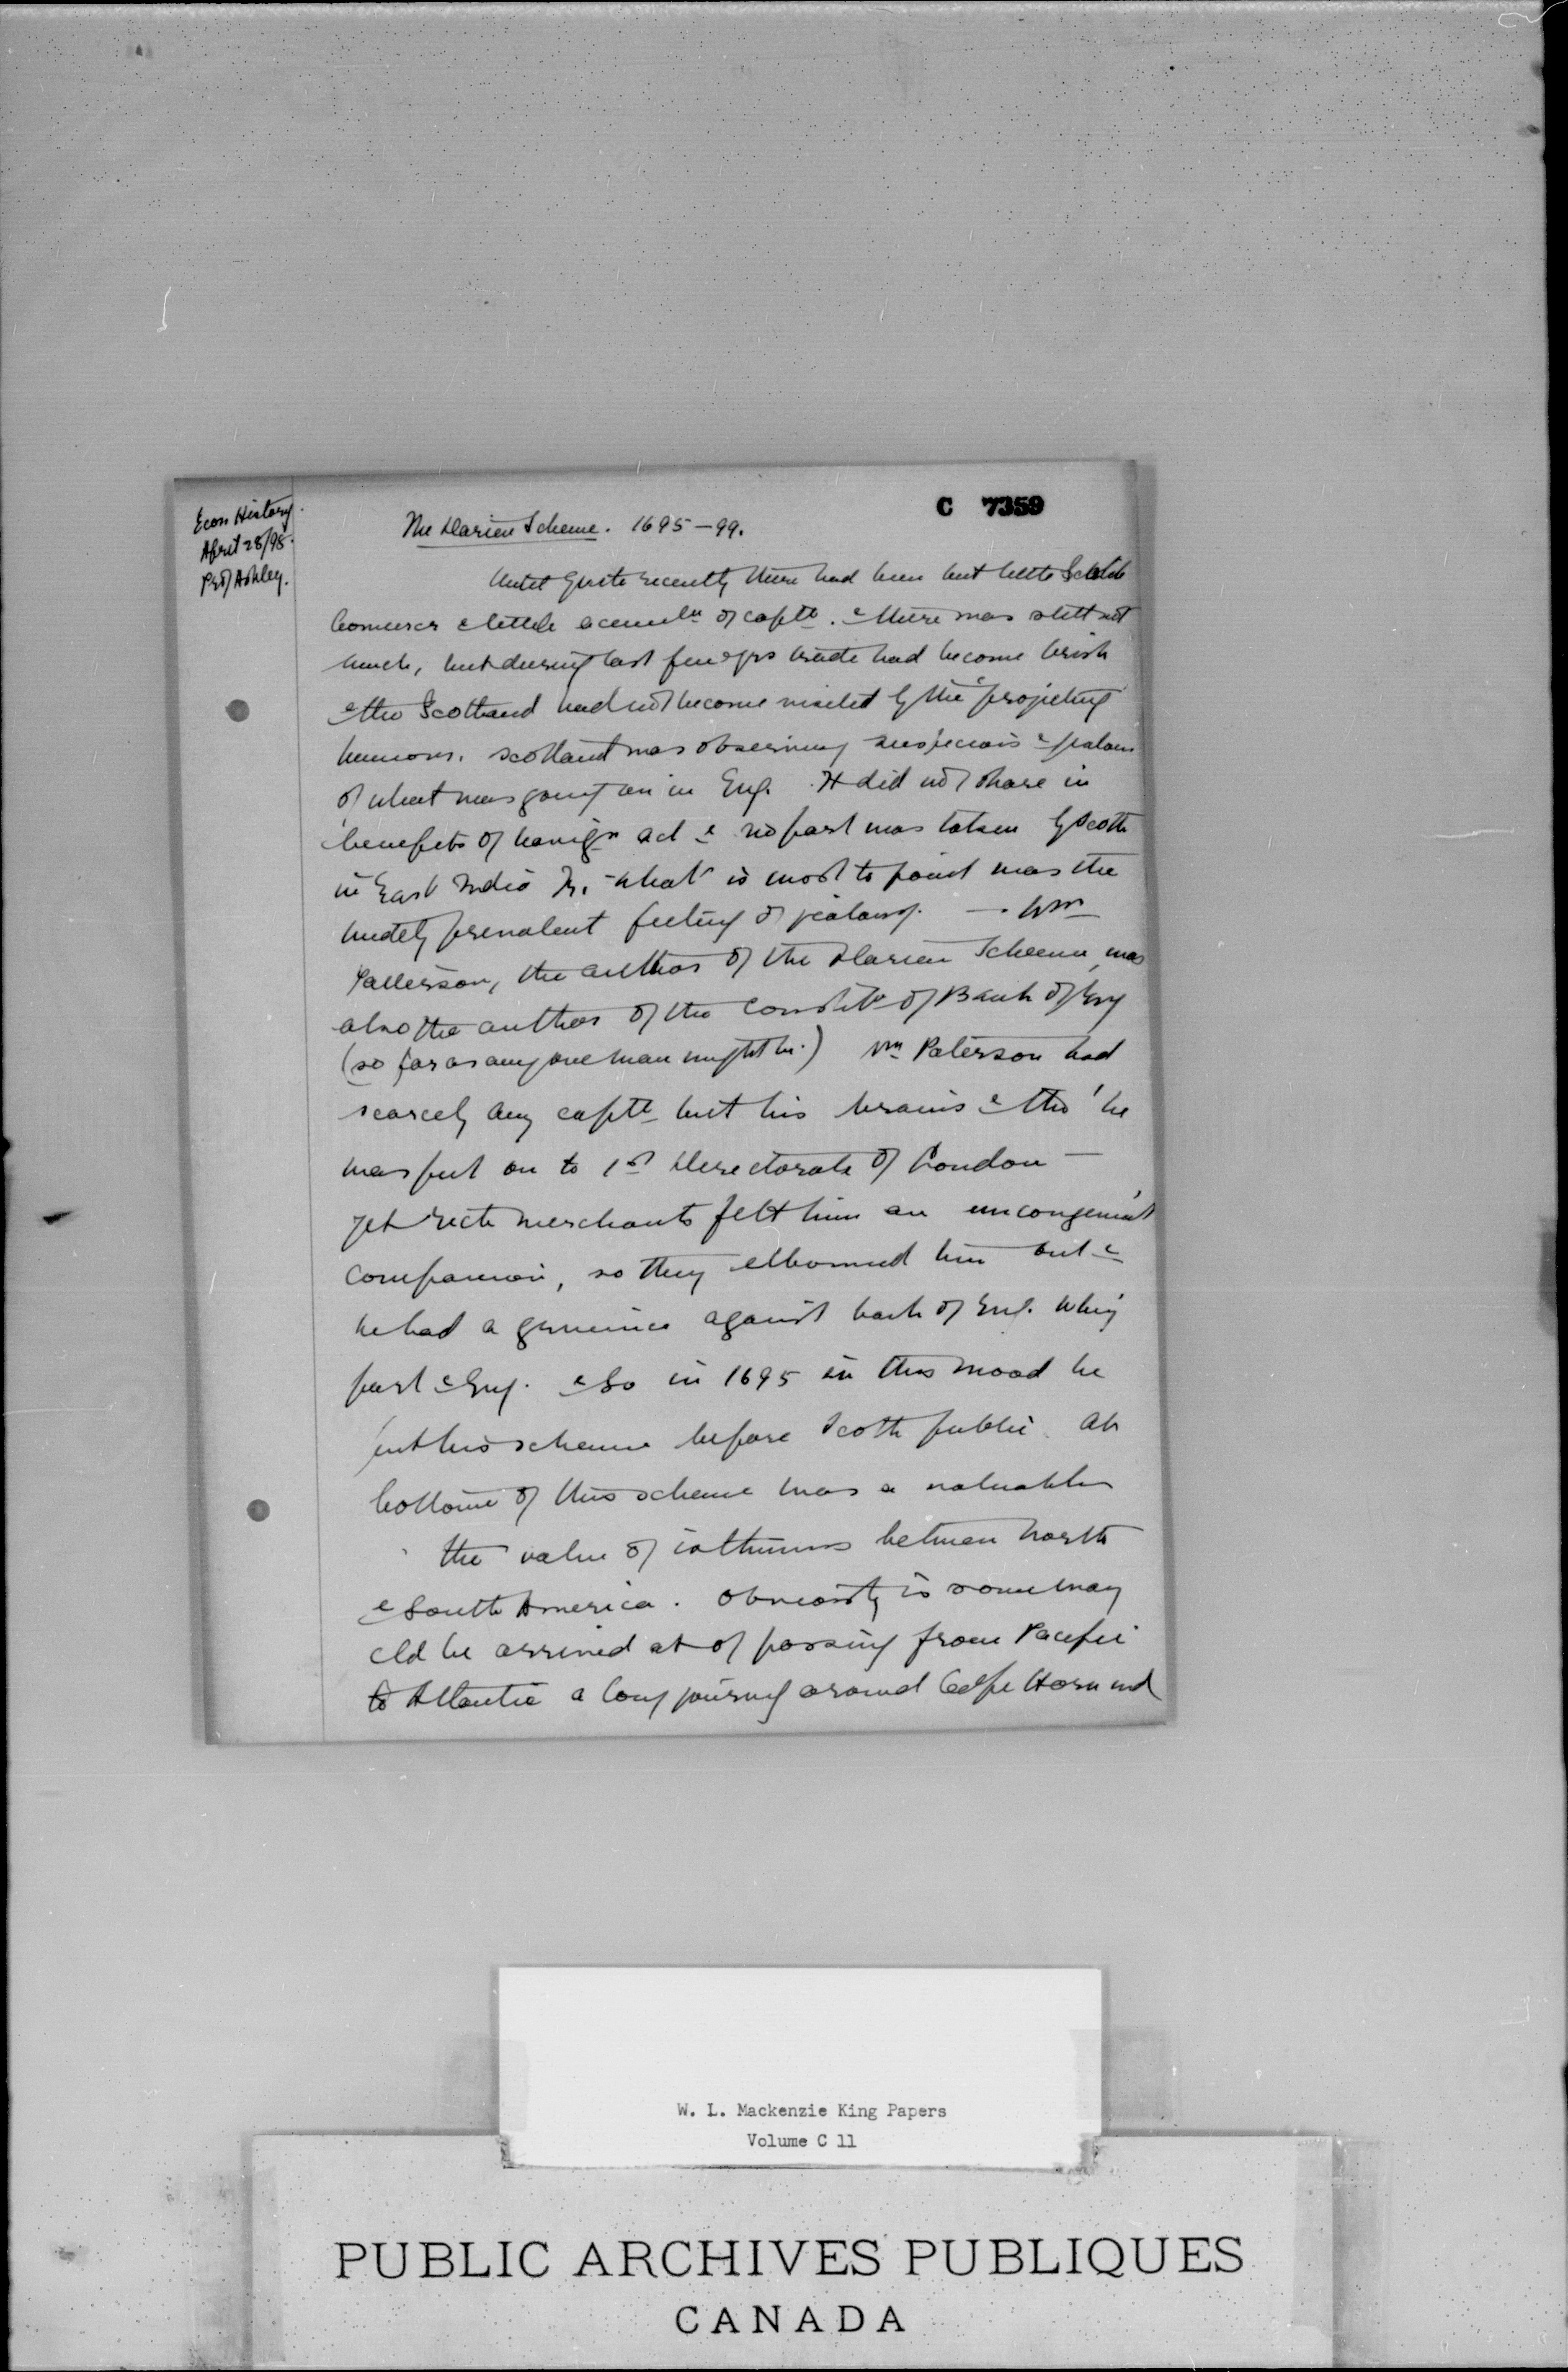 C 7359
Econ History.
April 28/98.
Prof Ashley.
The Darien Scheme. 1695-99.
Until quite recently there had been but little Scotch
Commerce & little accumuln of captl. & there was still not
much, but during last few yrs trade had become brisk
& tho Scotland had not become visited by the "projecting"
humour. Scotland was observing suspicious & jealous
of what was going on in Eng. It did not share in
benefits of navign act & no part was taken by Scotch
in East India Tr. What is most to point was the
widely prevalent feeling of jealousy. — Wm
Patterson, the author of the Darien Scheme, was
also the author of the constitn of Bank of Eng
(so far as any one man might be.) Wm Paterson had
scarcely any captl but his brains & tho' he
was put on to 1st Directorate of London —
yet rich merchants felt him an uncongenial
companion, so they elbowed him out &
he had a grievance against bank of Eng. Whig
part & Eng. & so in 1695 in this mood he
put his scheme before Scotch public. At
bottom of this scheme was a valuable
the value of isthmus between North
& South America. Obviously is some way
cld be arrived at of passing from Pacific
to Atlantic a long journey around Cape Horn wd
W. L. Mackenzie King Papers
Volume C 11
PUBLIC ARCHIVES PUBLIQUES
CANADA